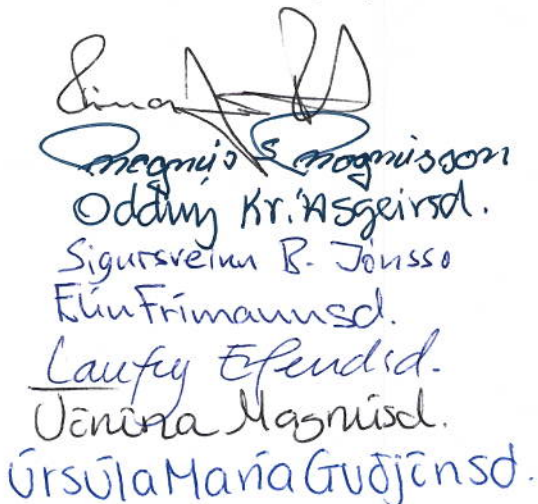 Magnús S Magnússon
Oddný Kr. Ásgeirsd.
Sigursveinn B. Jónsso
Elín Frímannsd.
Laufey Elfendid.
Jónína Magnúsd.
Úrsúla María Guðjónsd.